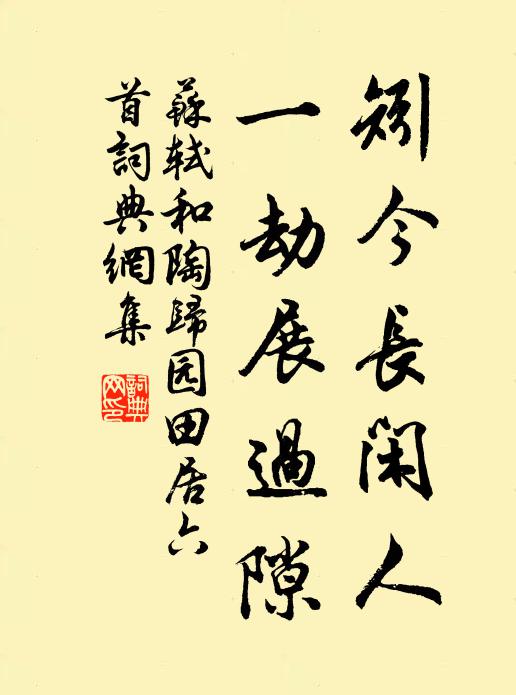 矧今長閑人
一劫展過隙
蘇軾和陶歸园田居六
首詞典網集
詞典
网印